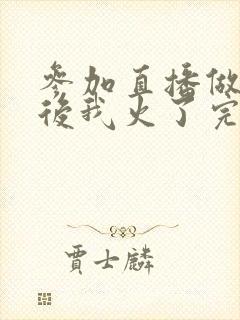 參加直播做
後我火了完
賈士麟